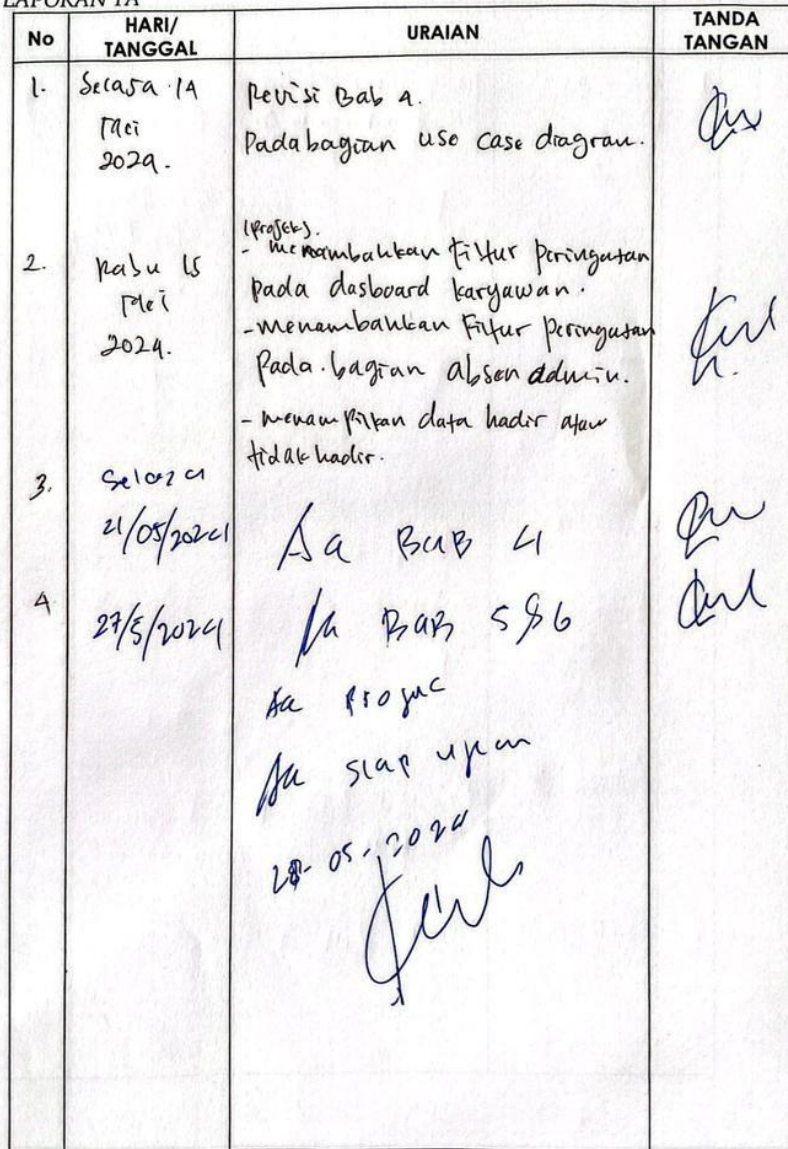 LAPORAN TA
No
HARI/
TANGGAL
URAIAN
TANDA
TANGAN
1.
Selasa 14
Mei
2024.
Revisi Bab 4.
Pada bagian use case diagram.
2.
Rabu 15
Mei
2024.
(Projek).
- menambahkan Fitur peringatan
pada dasboard karyawan.
- menambahkan Fitur peringatan
Pada bagian absen admin.
- menampilkan data hadir atau
tidak hadir.
3.
Selasa
21/05/2024
Aa BAB 4
4
27/5/2024
BAB 5 & 6
Aa
Aa siap ujian
28-05-2024